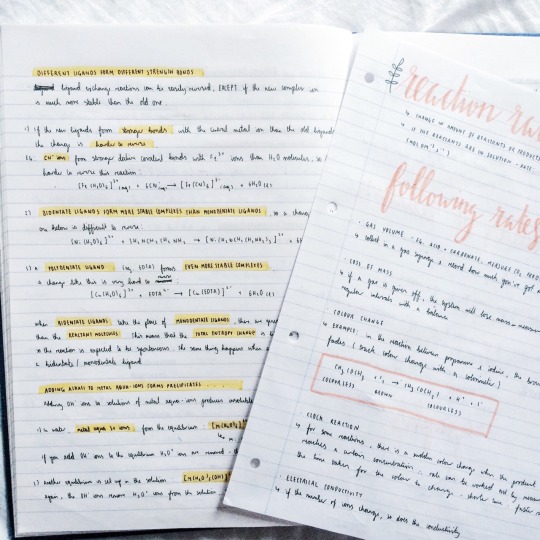 DIFFERENT LIGANDS FORM DIFFERENT STRENGTH BONDS
ligand exchange reactions can be easily reversed, EXCEPT if the new complex ion
is much more stable than the old one.
1) if the new ligands form stronger bonds with the central metal ion than the old ligands
the change is harder to reverse
CN⁻ ions form stronger dative covalent bonds with Fe³⁺ ions than H₂O molecules, so
harder to reverse this reaction
[Fe(H₂O)₆]³⁺(aq) + 6CN⁻(aq) → [Fe(CN)₆]³⁻(aq) + 6H₂O (l)
2) BIDENTATE LIGANDS FORM MORE STABLE COMPLEXES THAN MONODENTATE LIGANDS, so a change
one below is difficult to reverse:
3) a POLYDENTATE LIGAND (eg. EDTA) forms EVEN MORE STABLE COMPLEXES
a change like this is very hard to reverse
when BIDENTATE LIGANDS take the place of MONODENTATE LIGANDS, there are
than the REACTANT MOLECULES. This means that the TOTAL ENTROPY CHANGE is
so the reaction is expected to be spontaneous. the same thing happens when
a bidentate / monodentate ligand
ADDING ALKALI TO METAL AQUA-IONS FORMS PRECIPITATES
Adding OH⁻ ions to solutions of metal aqua-ions produces insoluble
1) in water metal aqua 3+ ions form the equilibrium
if you add OH⁻ ions to the equilibrium H₃O⁺ ions are removed
2) another equilibrium is set up in the solution
again, the OH⁻ ions remove H₃O⁺ ions from the solution
reaction rat
↳ CHANGE IN AMOUNT OF REACTANTS OR PRODUCTS
↳ IF THE REACTANTS ARE IN SOLUTION - RATE
(MOL DM⁻³ S⁻¹)
following rates
· GAS VOLUME - EG. ACID + CARBONATE, MEASURE CO₂
↳ collect in a gas syringe & record how much you've got
· LOSS OF MASS
↳ if a gas is given off, the system will lose mass - measure
regular intervals with a balance
COLOUR CHANGE
↳ EXAMPLE: in the reaction between propanone & iodine, the brown
fades (track colour change with a colorimeter)
(COLOURLESS) BROWN (COLOURLESS)
CLOCK REACTION
↳ for some reactions, there is a sudden colour change when the product
reaches a certain concentration. rate can be worked out by
the time taken for the colour to change - shorter time : faster
· ELECTRICAL CONDUCTIVITY
↳ if the number of ions change, so does the conductivity